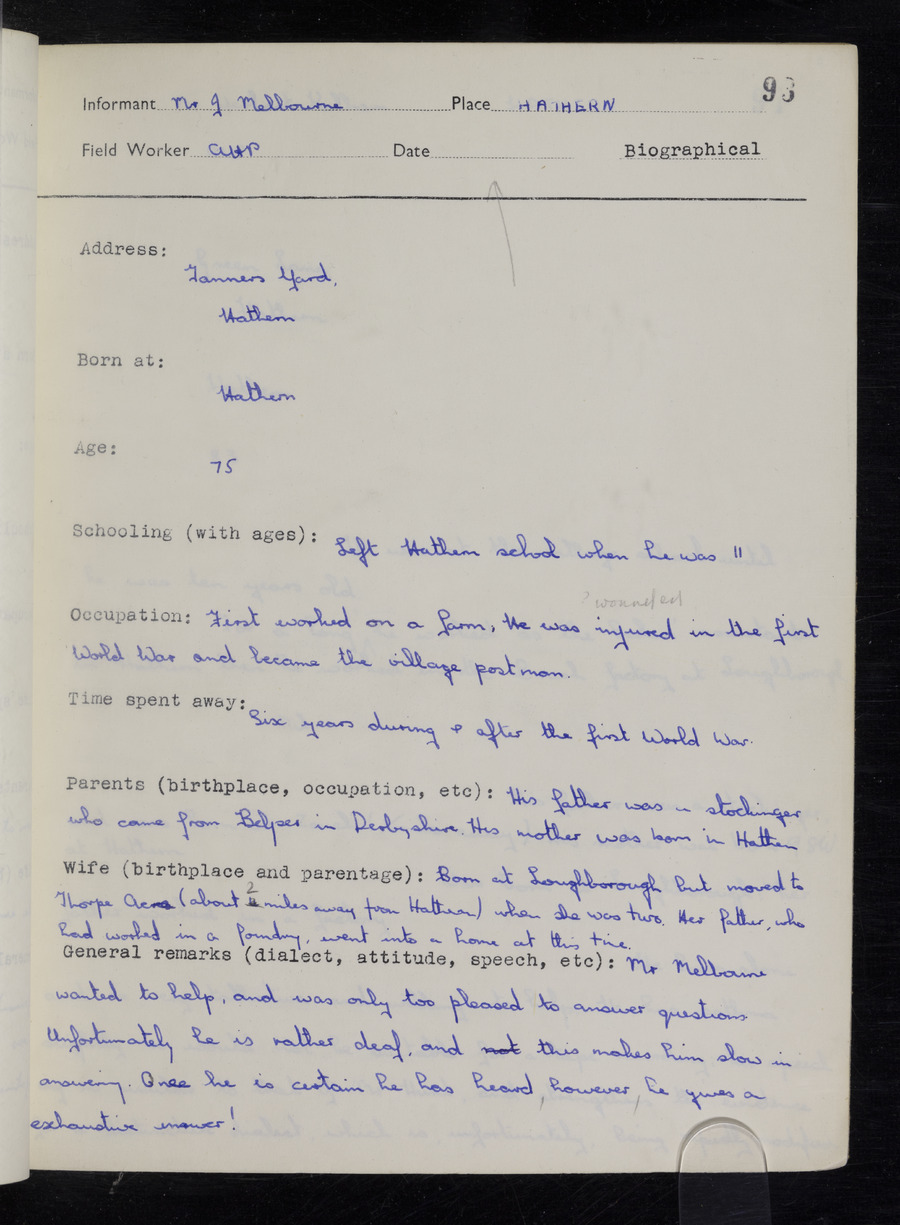 93
Informant Mr J Melbourne Place HATHERN
Field Worker Date Biographical
Address:
Tanners Yard,
Hathern
Born at:
Hathern
Age:
75
Schooling (with ages): Left Hathern school when he was 11
? wounded
Occupation: First worked on a farm, He was injured in the first
World War and became the village postman.
Time spent away: Six years during & after the first World War.
Parents (birthplace, occupation, etc): His father was a stockinger
who came from Belper in Derbyshire. His mother was born in Hathern
Wife (birthplace and parentage): Born at Loughborough but moved to
Thorpe Acre (about 2 miles away from Hathern) when she was two. Her father, who
had worked in a foundry, went into a home at this time.
General remarks (dialect, attitude, speech, etc): Mr Melbourne
wanted to help, and was only too pleased to answer questions
Unfortunately he is rather deaf, and not this makes him slow in
answering. Once he is certain he has heard, however, he gives a
exhaustive answer!